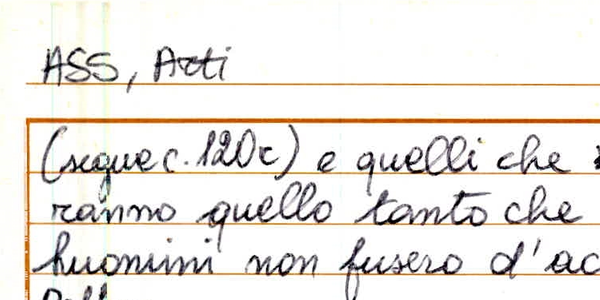 ASS, Arti
(segue c. 120r) e quelli che
ranno quello tanto che
huomini non fusero d'ac